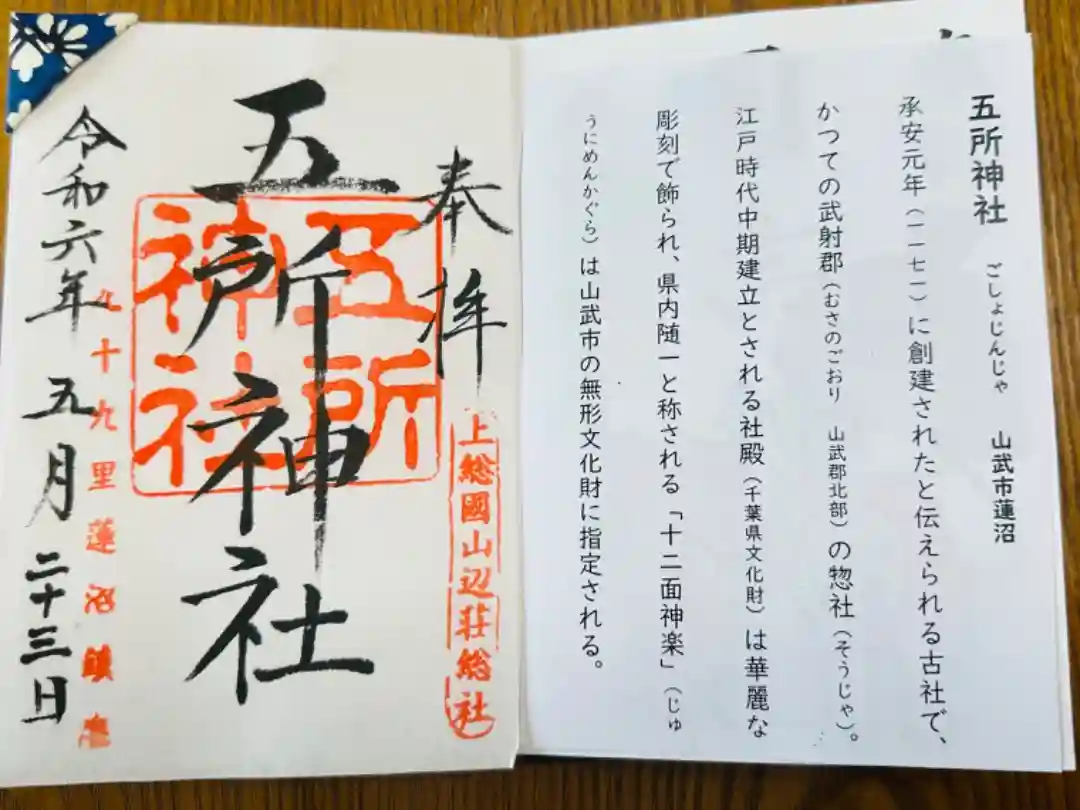 五所神社　ごしょじんじゃ　山武市蓮沼
承安元年（一一七一）に創建されたと伝えられる古社で、
かつての武射郡（むさのごおり　山武郡北部）の惣社（そうじゃ）。
江戸時代中期建立とされる社殿（千葉県文化財）は華麗な
彫刻で飾られ、県内随一と称される「十二面神楽」（じゅ
うにめんかぐら）は山武市の無形文化財に指定される。
奉拝
上総國山辺荘総社
五所神社
五所
神社
九十九里蓮沼鎮座
令和六年五月二十三日